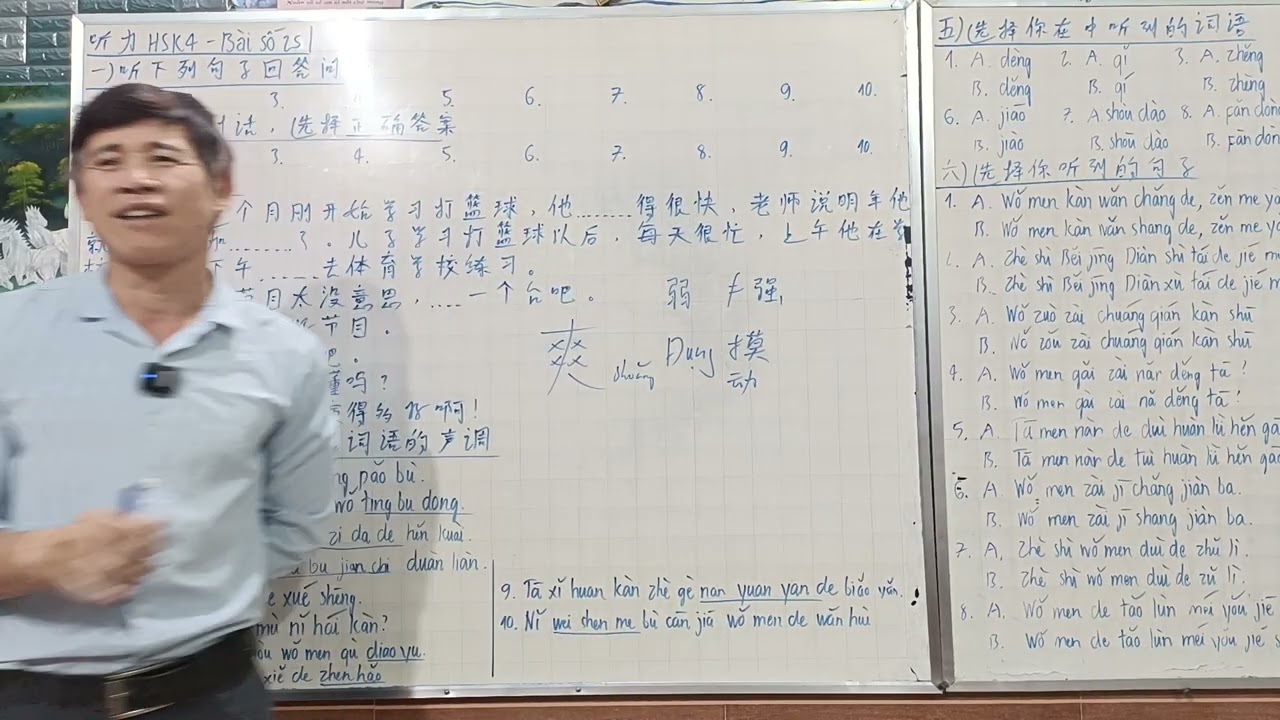 听力 HSK4 - Bài số 25
一) 听下列句子回答问
3. 4. 5. 6. 7. 8. 9. 10.
对话, 选择正确答案
3. 4. 5. 6. 7. 8. 9. 10.
个月刚开始学习打篮球, 他........得很快, 老师说明年他
.........了。儿子学习打篮球以后, 每天很忙, 上午他在学
下午.......去体育学校练习。
节目太没意思, .....一个台吧。
弱 ≠ 强
节目.
吧.
爽 shuǎng
Dụng 摸
动
懂吗?
得多好啊!
词语的声调
ng pǎo bù.
wǒ ting bu dong.
zi da de hěn kuài.
bu jian chi duàn liàn.
e xué shēng.
mù nǐ hái kàn?
wǒ men qù diao yu.
xiě de zhen hǎo
9. Tā xǐ huan kàn zhè gè nan yuan yan de biǎo yǎn.
10. Nǐ wei shen me bù cān jiā wǒ men de wǎn huì
五) 选择你在中听到的词语
1. A. dèng 2. A. qǐ 3. A. zhěng
B. děng B. qí B. zhèng
6. A. jiāo 7. A. shòu dào 8. A.
B. jiào B. shōu dào B.
六) 选择你听到的句子
1. A. Wǒ men kàn wǎn chǎng de, zěn me
B. Wǒ men kàn wǎn shang de, zěn me
2. A. Zhè shì Běi jīng Diàn shì tái de jié
B. Zhè shì Běi jīng Diàn xù tái de jié
3. A. Wǒ zuò zài chuáng qián kàn shū
B. Wǒ zǒu zài chuāng qián kàn shū
4. A. Wǒ men gāi zài nàr děng tā?
B. Wǒ men gāi zài nǎ děng tā?
5. A. Tā men nàr de duì huàn lǜ hěn
B. Tā men nàr de tuì huàn lǜ hěn
6. A. Wǒ men zài jī chǎng jiàn ba.
B. Wǒ men zài jī shang jiàn ba.
7. A. Zhè shì wǒ men duì de zhǔ lì.
B. Zhè shì wǒ men duì de zǔ lì.
8. A. Wǒ men de tǎo lùn méi yǒu jié
B. Wǒ men de tǎo lùn méi yǒu jiē